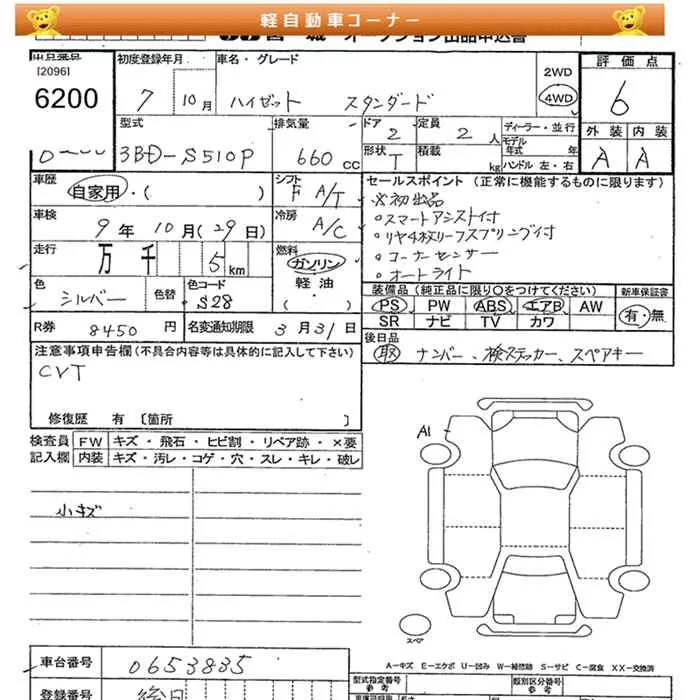 軽自動車コーナー
オークション出品申込書
出品番号 初度登録年月 車名・グレード 評価点
[2096]
6200
7 10月 ハイゼット スタンダード 2WD 4WD 6
型式 排気量 ドア 定員 ディーラー・並行 外装 内装
3BD-S510P 660cc 2 2人 モデル年式 年 A A
形状 T 積載 kg ハンドル 左・右
車歴 シフト セールスポイント (正常に機能するものに限ります)
自家用・( ) F A/T ※初出品
車検 冷房 。スマートアシスト付
9年10月(29日) A/C 。リヤ4枚リーフスプリング付
走行 燃料 。コーナーセンサー
万千 5km ガソリン 。オートライト
軽油・( )
色 色替 色コード 装備品 (純正品に限り○をつけてください) 新車保証書
シルバー S28 PS PW ABS エアB AW 有・無
SR ナビ TV カワ
R券 8450円 名変通知期限 3月31日 後日品
取 ナンバー、検ステッカー、スペアキー
注意事項申告欄(不具合内容等は具体的に記入して下さい)
CVT
修復歴 有 〔箇所 〕
検査員 FW キズ・飛石・ヒビ割・リペア跡・×要
記入欄 内装 キズ・汚レ・コゲ・穴・スレ・キレ・破レ
A1
小キズ
スペア
A-キズ E-エクボ U-凹み W-補修跡 S-サビ C-腐食 XX-交換済
車台番号 0653835
型式指定番号 参考 類別区分番号 参考
登録番号 後日